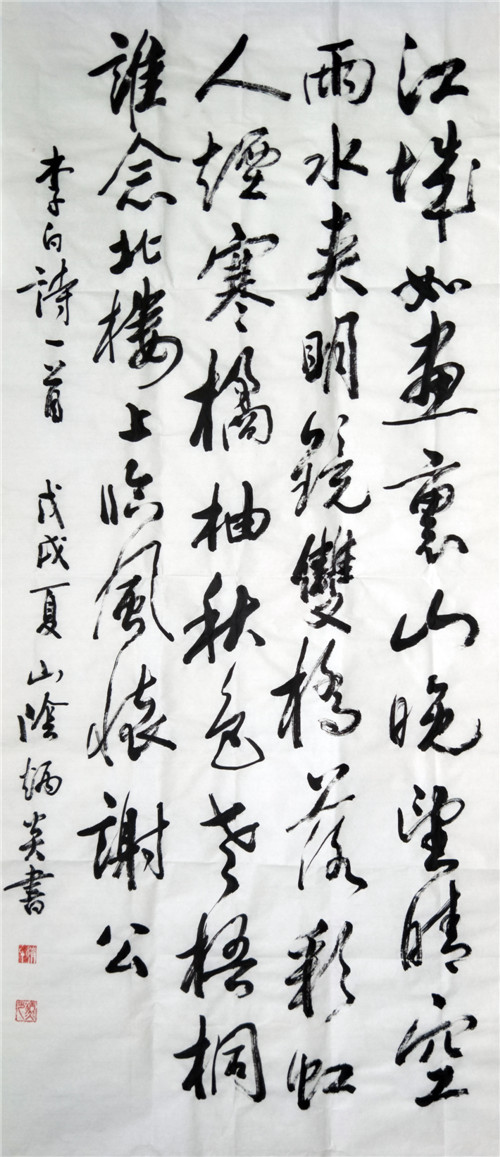 江城如畫裏山晚望晴空
兩水夾明鏡雙橋落彩虹
人煙寒橘柚秋色老梧桐
誰念北樓上臨風懷謝公
李白詩一首 戊戌夏山陰炳炎書